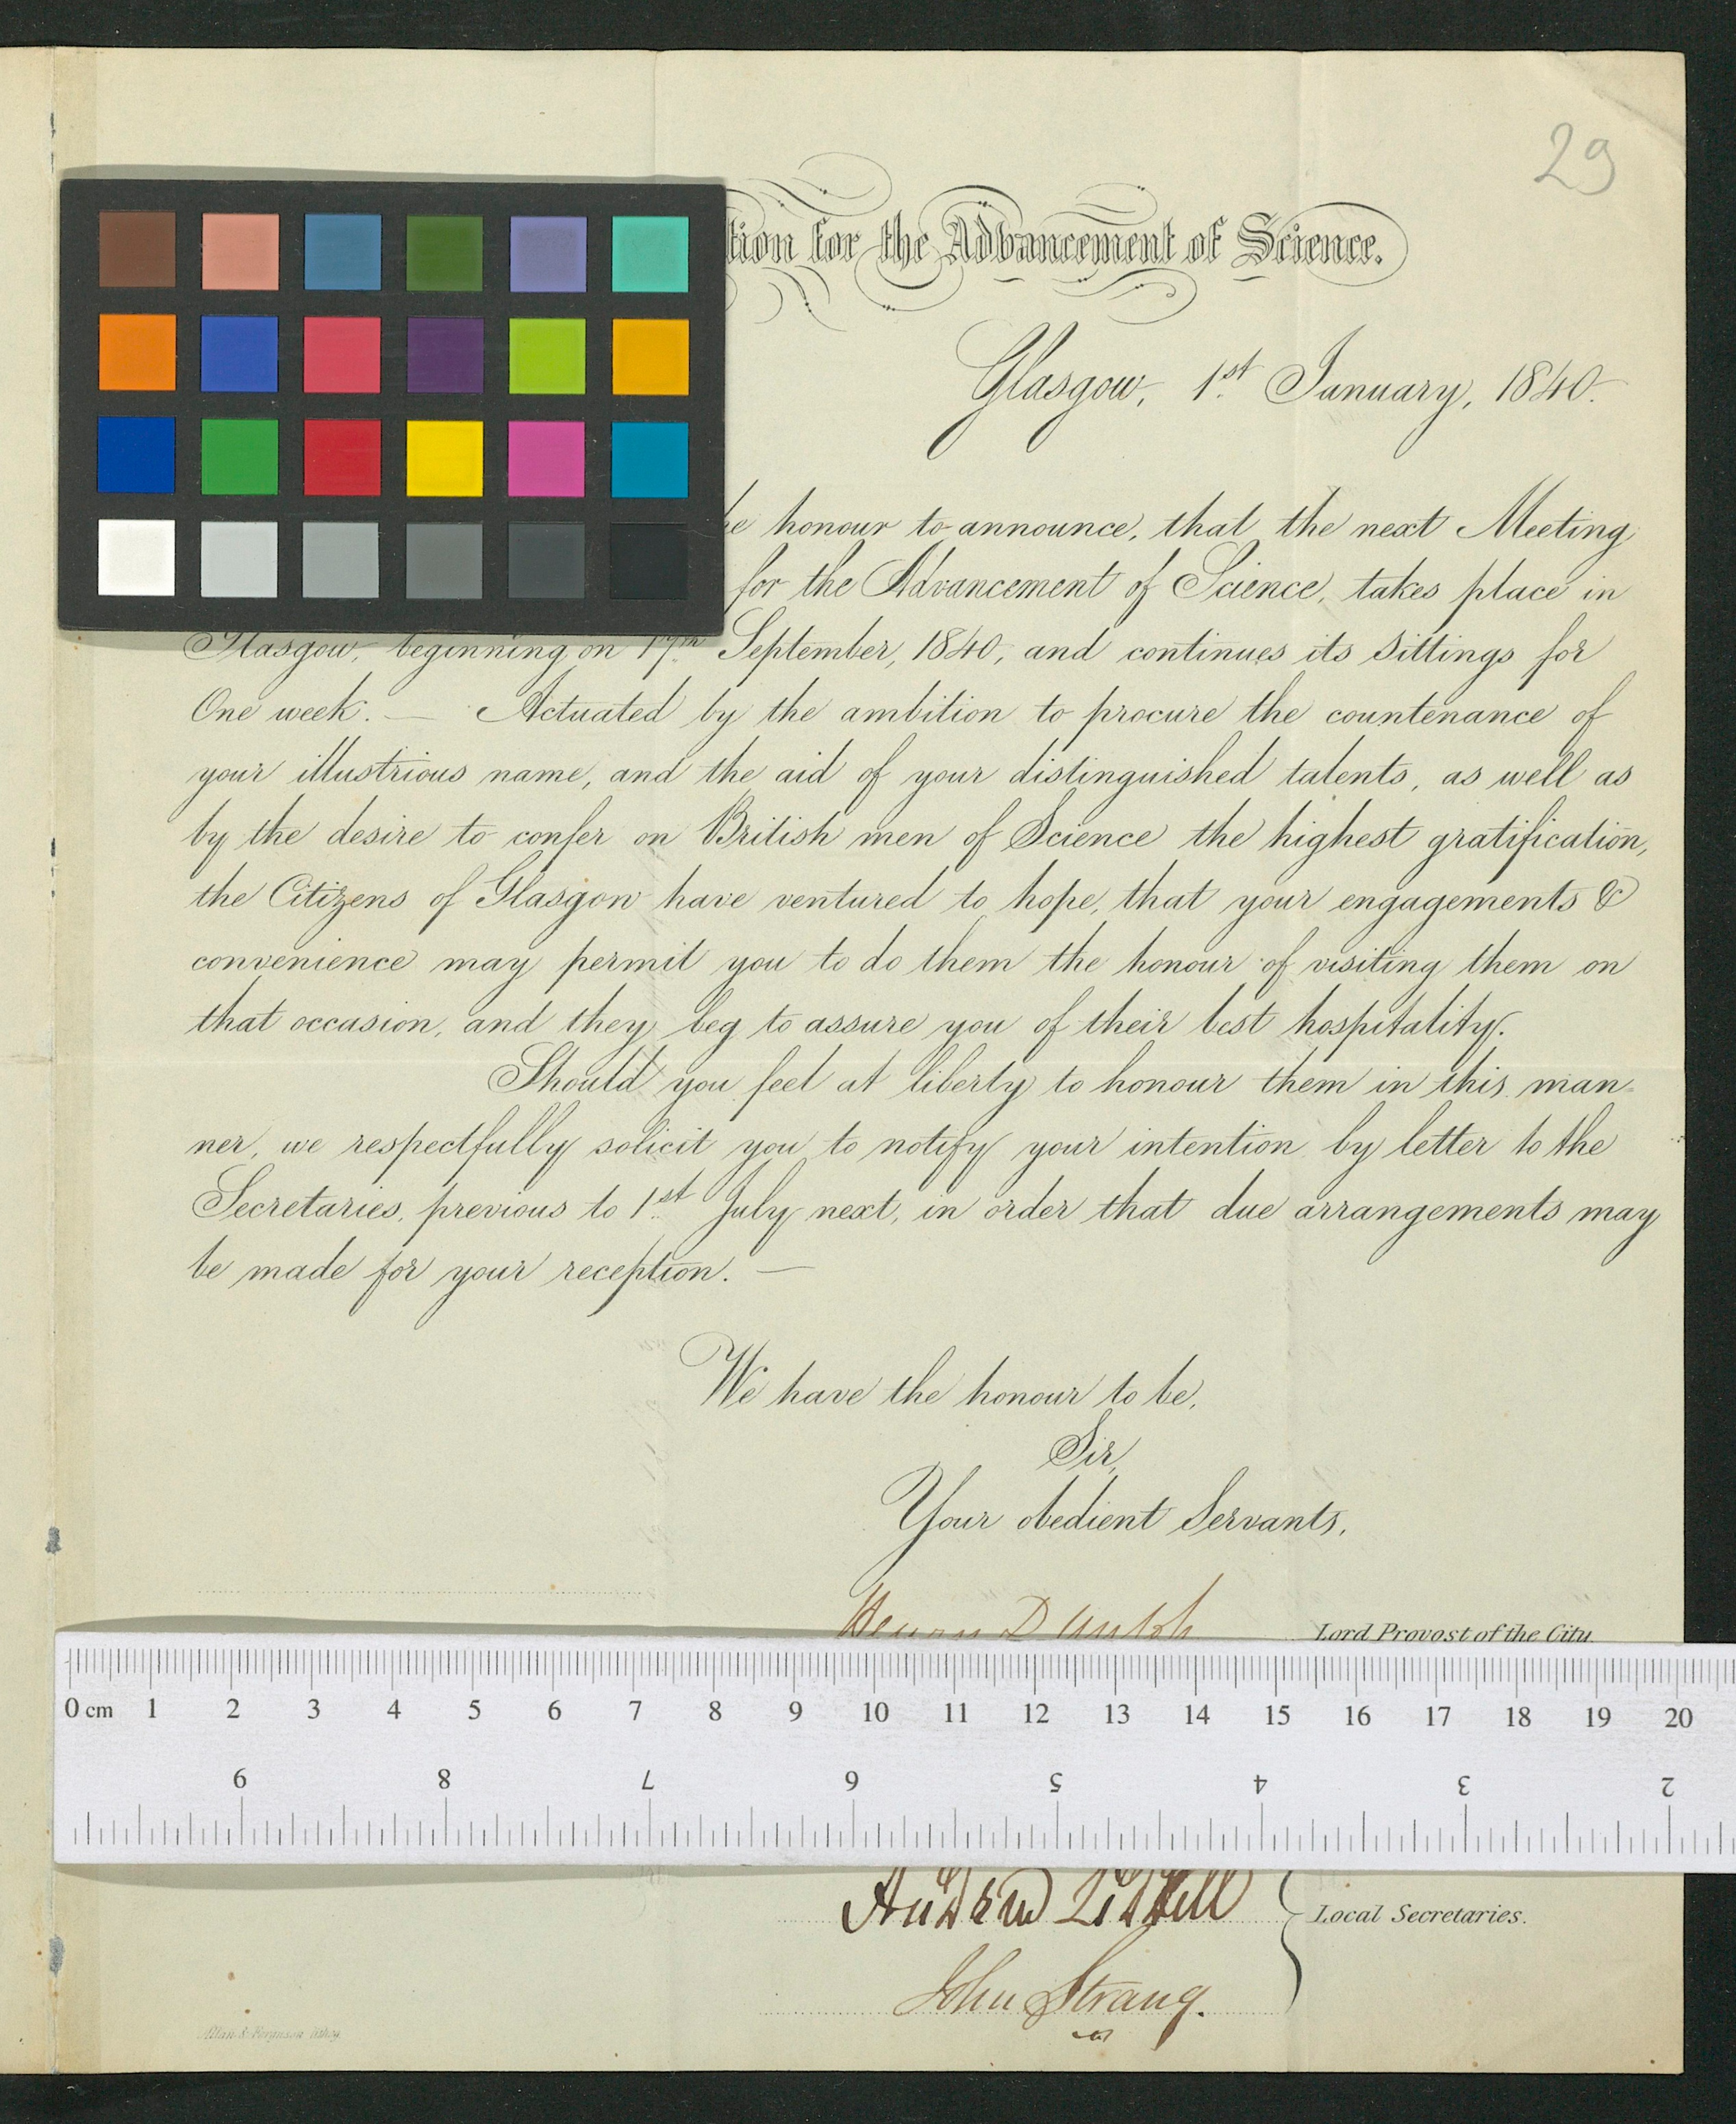 29
tion for the Advancement of Science.
Glasgow, 1st January, 1840.
he honour to announce, that the next Meeting
for the Advancement of Science, takes place in
Glasgow, beginning on 17th September, 1840, and continues its Sittings for
One week. — Actuated by the ambition to procure the countenance of
your illustrious name, and the aid of your distinguished talents, as well as
by the desire to confer on British men of Science the highest gratification,
the Citizens of Glasgow have ventured to hope, that your engagements &
convenience may permit you to do them the honour of visiting them on
that occasion, and they beg to assure you of their best hospitality.
Should you feel at liberty to honour them in this man-
ner, we respectfully solicit you to notify your intention by letter to the
Secretaries, previous to 1st July next, in order that due arrangements may
be made for your reception. —
We have the honour to be,
Sir,
Your obedient Servants,
Lord Provost of the City
0 cm 1 2 3 4 5 6 7 8 9 10 11 12 13 14 15 16 17 18 19 20
9 8 7 6 5 4 3 2
Andrew Liddell
Local Secretaries.
John Strang.
Allan & Ferguson lithog.